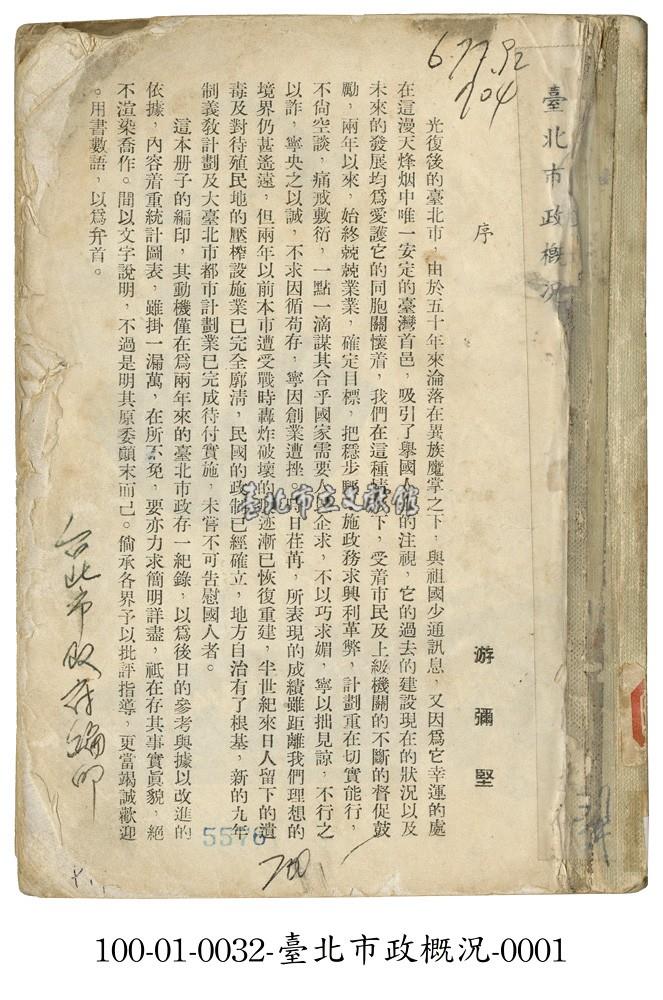 臺北市政概況
677.92
104
序
游彌堅
光復後的臺北市，由於五十年來淪落在異族魔掌之下，與祖國少通訊息，又因為它幸運的處
在這漫天烽烟中唯一安定的臺灣首邑，吸引了舉國的注視，它的過去的建設現在的狀況以及
未來的發展均為愛護它的同胞關懷着，我們在這種下，受着市民及上級機關的不斷的督促鼓
勵，兩年以來，始終兢兢業業，確定目標，把穩步施政務求興利革弊，計劃重在切實能行，
不尙空談，痛戒敷衍，一點一滴謀其合乎國家需要企求，不以巧求媚，寧以拙見諒，不行之
以詐，寧央之以誠，不求因循苟存，寧因創業遭挫，日荏苒，所表現的成績雖距離我們理想的
境界仍甚遙遠，但兩年以前本市遭受戰時轟炸破壞的迹漸已恢復重建，半世紀來日人留下的遺
毒及對待殖民地的壓榨設施業已完全廓淸，民國的政制已經確立，地方自治有了根基，新的九年
制義敎計劃及大臺北市都市計劃業已完成待付實施，未嘗不可告慰國人者。
這本册子的編印，其動機僅在為兩年來的臺北市政存一紀錄，以為後日的參考與據以改進的
依據，內容着重統計圖表，雖掛一漏萬，在所不免，要亦力求簡明詳盡，祇在存其事實眞貌，絕
不渲染喬作。間以文字說明，不過是明其原委顚末而已。倘承各界予以批評指導，更當竭誠歡迎
。用書數語，以為弁首。
臺北市立文獻館
台北市政府編印
5576
100-01-0032-臺北市政概況-0001